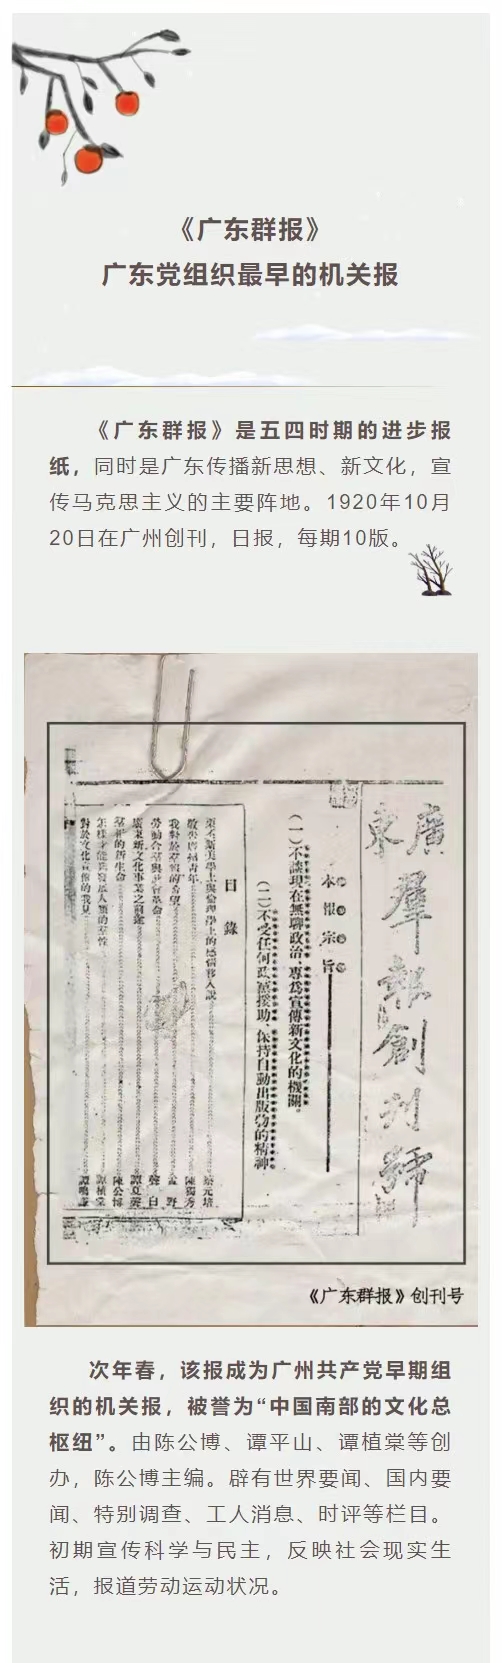 《广东群报》
广东党组织最早的机关报
《广东群报》是五四时期的进步报
纸，同时是广东传播新思想、新文化，宣
传马克思主义的主要阵地。1920年10月
20日在广州创刊，日报，每期10版。
廣東
羣報創刊號
本報宗旨
（一）不談現在無聊政治，專爲宣傳新文化的機關。
（二）不受任何政黨援助、保持自動出版物的精神
目錄
蔡元培
敬告廣州青年 陳獨秀
我對於羣報的希望
勞動合羣與社會革命
廣東新文化事業之前途 譚夏聲
羣報的新生命 陳公博
怎樣才能夠發展人類的羣性 譚植棠
對於文化宣傳的我見 譚鳴謙
《广东群报》创刊号
次年春，该报成为广州共产党早期组
织的机关报，被誉为“中国南部的文化总
枢纽”。由陈公博、谭平山、谭植棠等创
办，陈公博主编。辟有世界要闻、国内要
闻、特别调查、工人消息、时评等栏目。
初期宣传科学与民主，反映社会现实生
活，报道劳动运动状况。